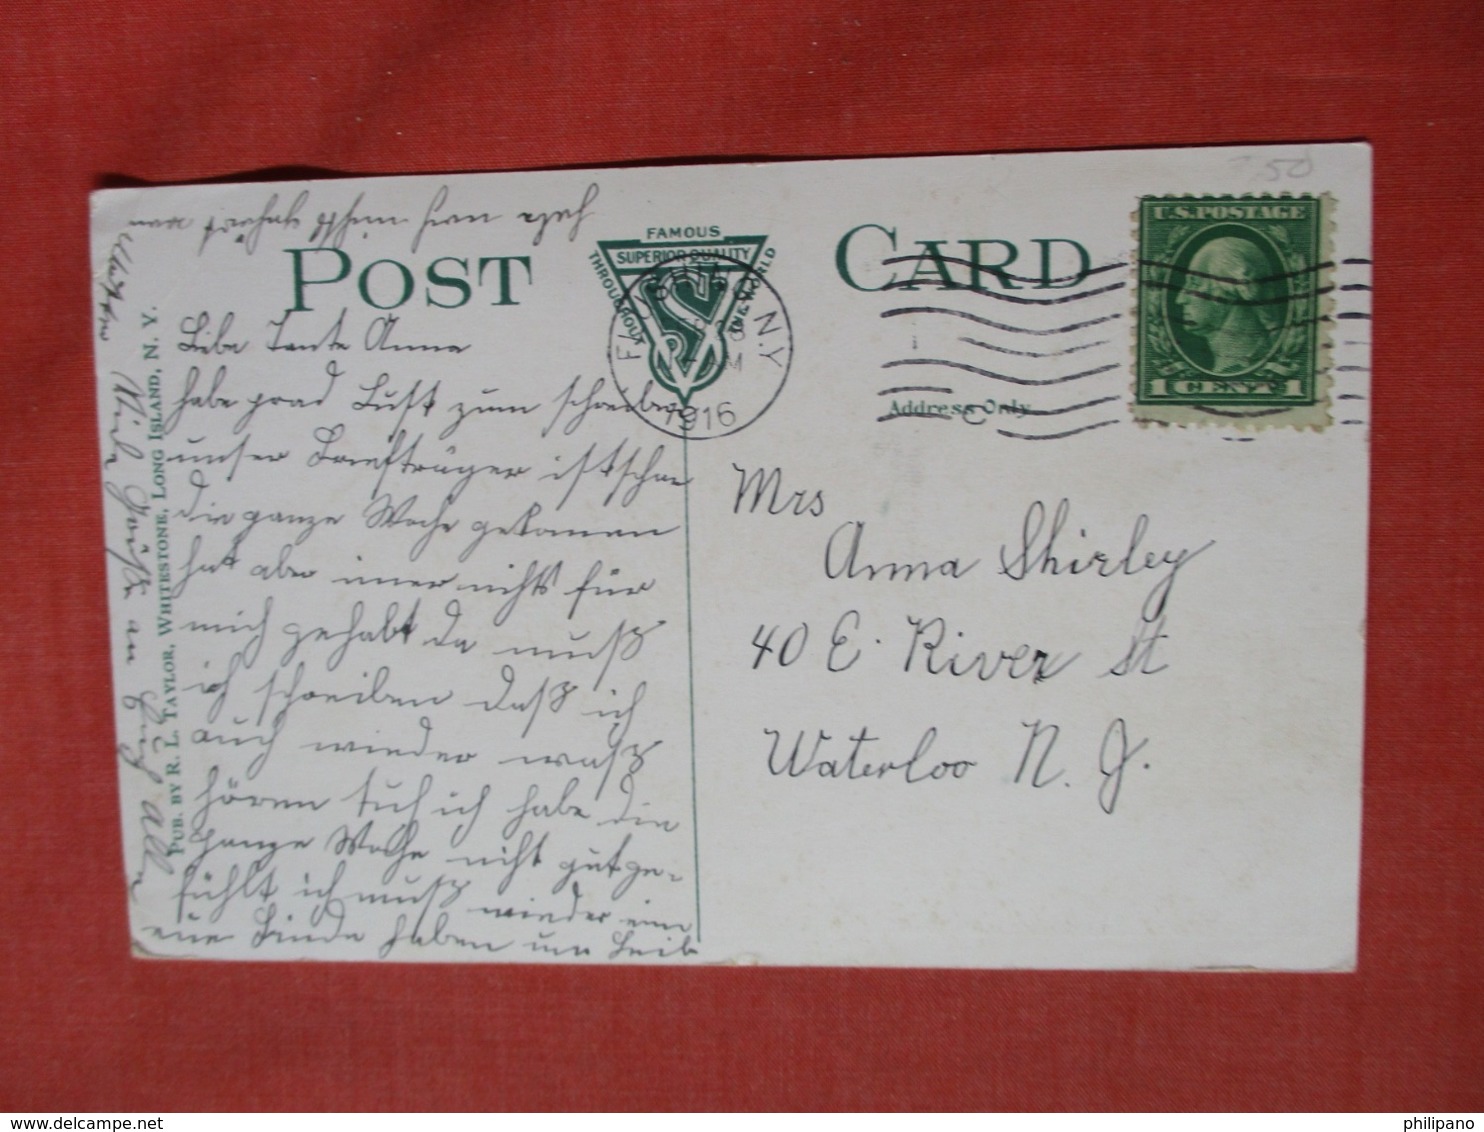 7.50
POST CARD
FAMOUS
SUPERIOR QUALITY
THROUGHOUT
THE WORLD
FLUSHING N.Y.
1916
U.S. POSTAGE
1 CENT 1
Address Only
PUB. BY R. L. TAYLOR, WHITESTONE, LONG ISLAND, N. Y.
Liebe Tante Anna
habe grad Lust zum schreiben
unser Briefträger ist schon
die ganze Woche gekomen
hat aber imer nichts für
mich gehabt da muß
ich schreiben daß ich
auch wieder waß
hören tuh ich habe die
ganze Woche nicht gut ge-
fühlt ich muß wieder eine
eine Binde haben um Leib
Viele Grüße an Euch alle
Mrs
Anna Shirley
40 E. River St
Waterloo N. J.
philipano